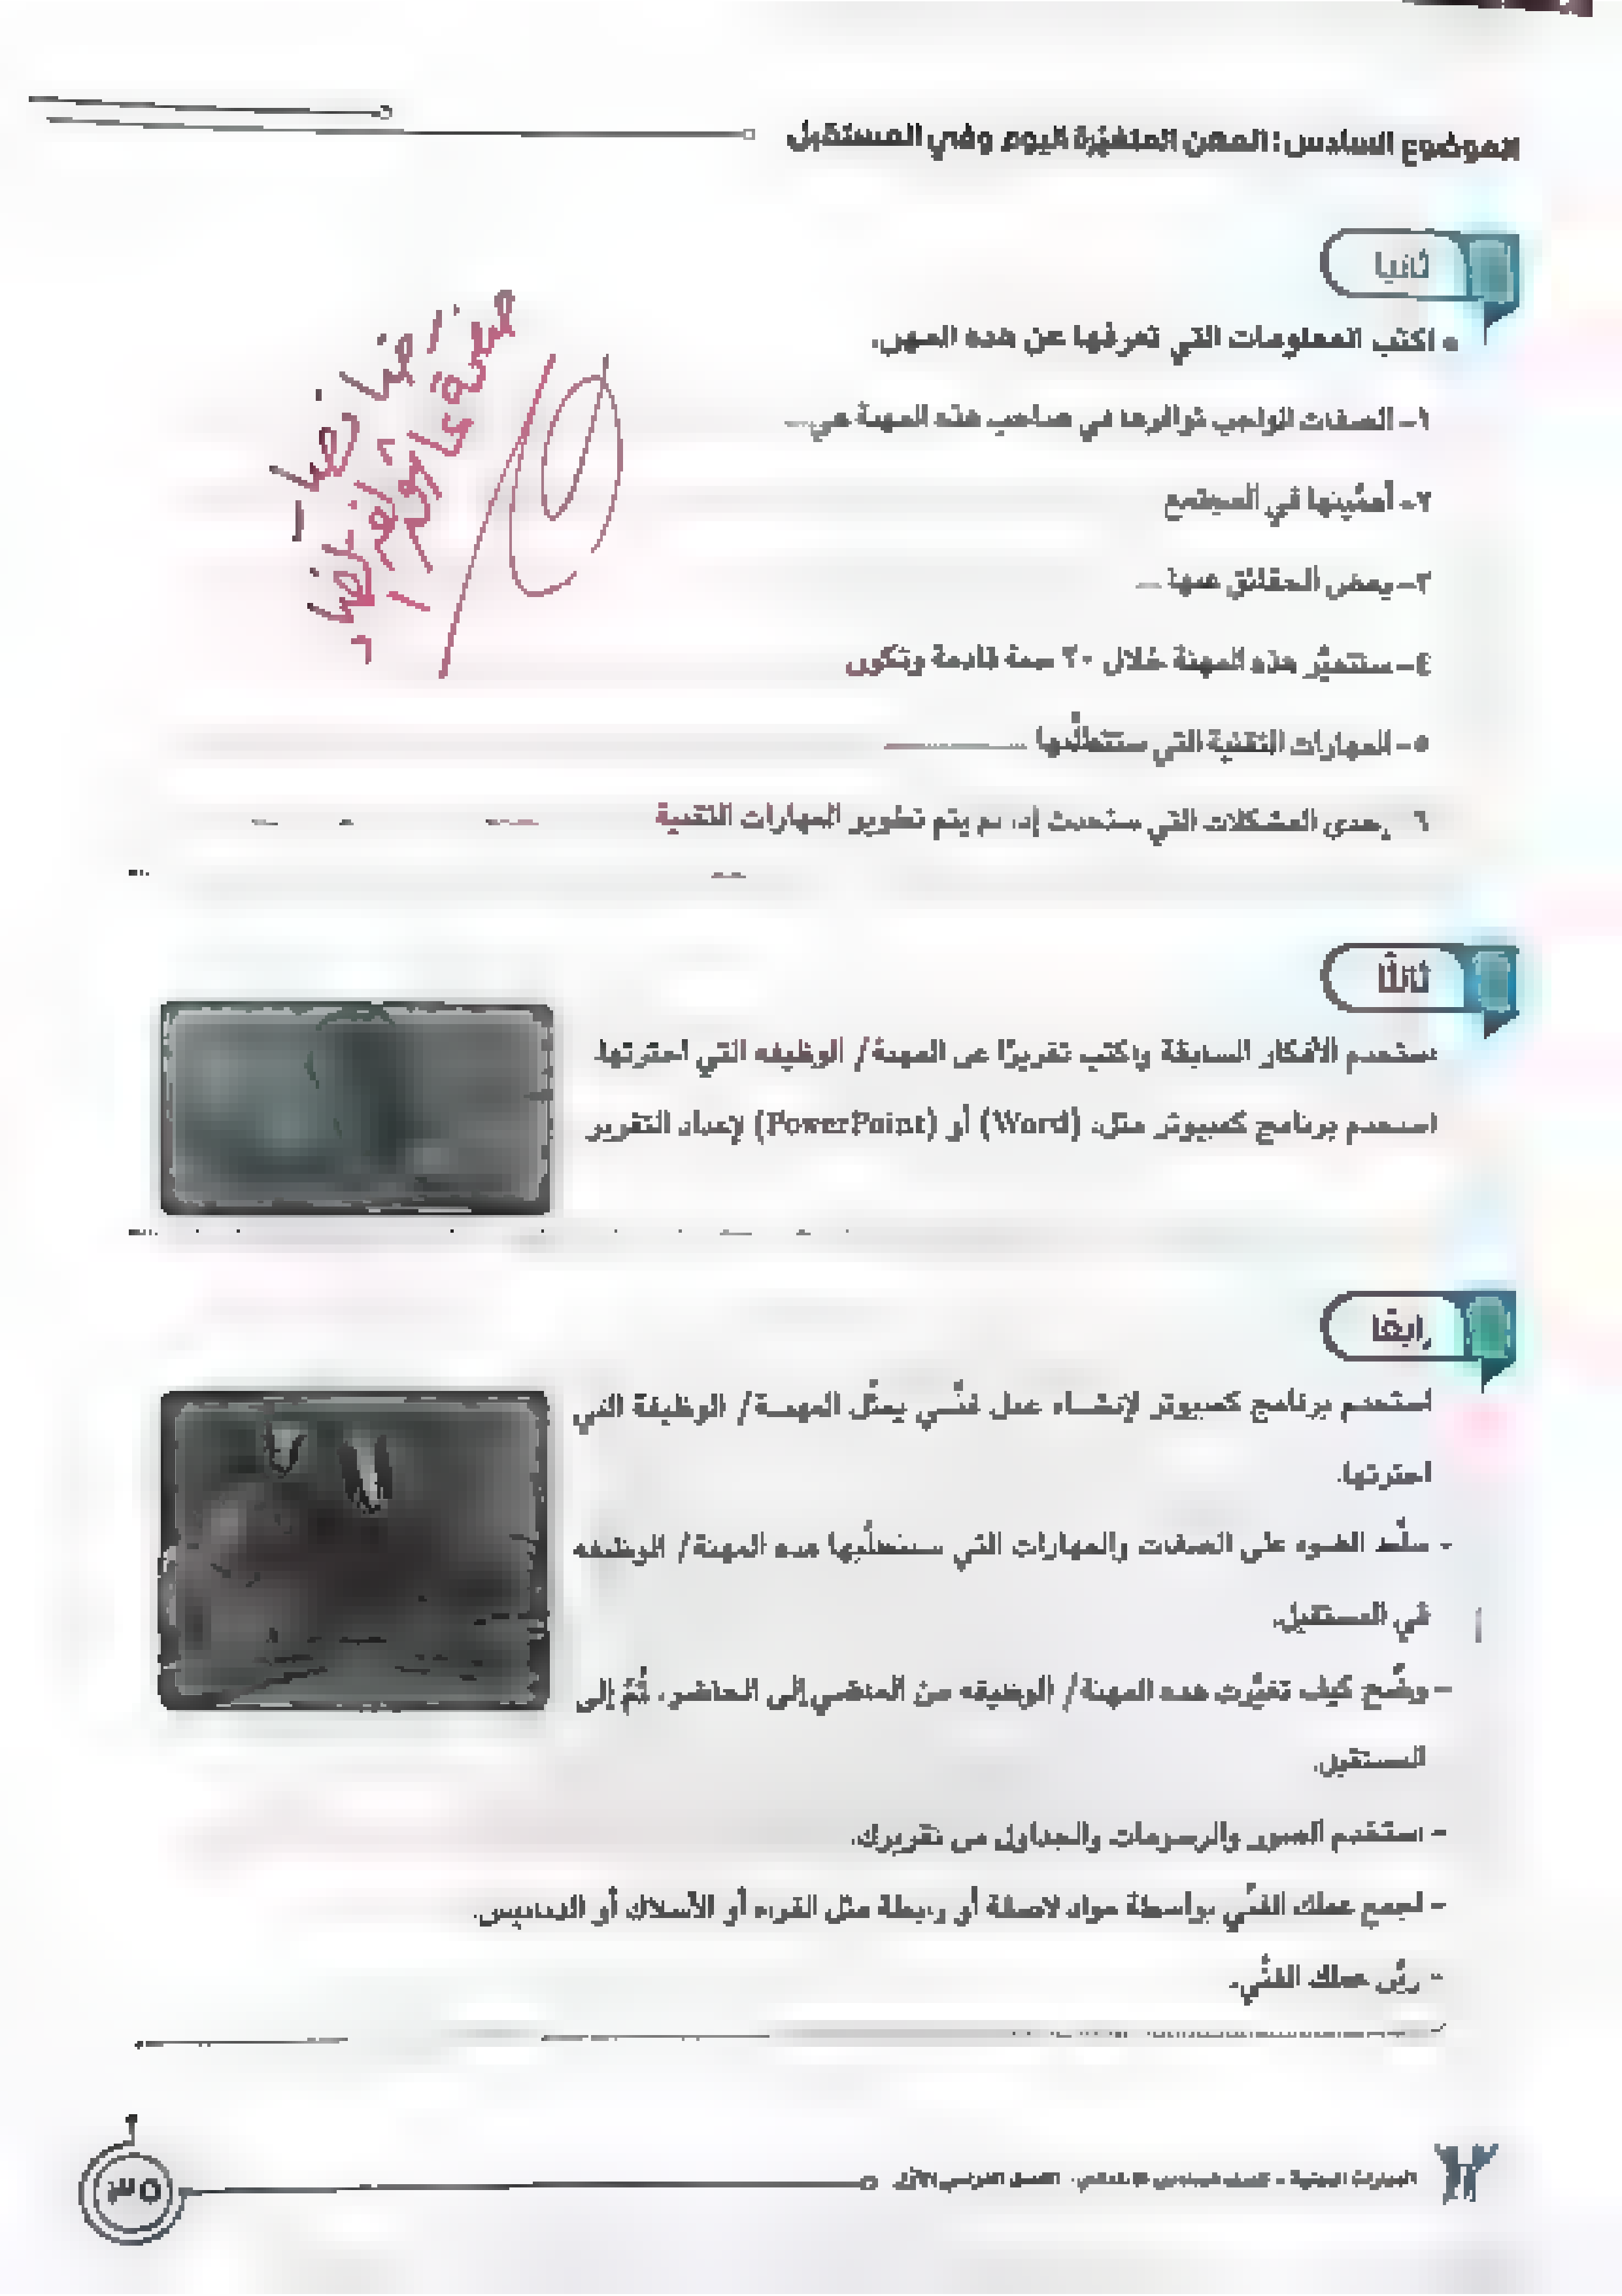 الموضوع السادس: المهن المتغيّرة اليوم وفي المستقبل
ثانيا
• اكتب المعلومات التي تعرفها عن هذه المهن.
١- الصفات الواجب توافرها في صاحب هذه المهنة هي
٢- أهمّيتها في المجتمع
٣- بعض الحقائق عنها
٤- ستتغيّر هذه المهنة خلال ٢٠ سنة قادمة وتكون
٥- المهارات التقنية التي ستتطلّبها
٦- إحدى المشكلات التي ستحدث إذا لم يتم تطوير المهارات التقنية
ثالثًا
استخدم الأفكار السابقة واكتب تقريرًا عن المهنة/ الوظيفة التي اخترتها.
استخدم برنامج كمبيوتر مثل: (Word) أو (PowerPoint) لإعداد التقرير
رابعًا
استخدم برنامج كمبيوتر لإنشاء عمل فنّي يمثّل المهنة/ الوظيفة التي
اخترتها.
- سلّط الضوء على الصفات والمهارات التي ستتطلّبها هذه المهنة/ الوظيفة
في المستقبل.
- وضّح كيف تغيّرت هذه المهنة/ الوظيفة من الماضي إلى الحاضر، ثُمّ إلى
المستقبل.
- استخدم الصور والرسومات والجداول في تقريرك.
- اجمع عملك الفنّي بواسطة مواد لاصقة أو رابطة مثل الغراء أو الأسلاك أو الدبابيس.
- زيّن عملك الفنّي.
المهارات الحياتية - الصف الخامس الأساسي - الفصل الدراسي الأول
٣٥